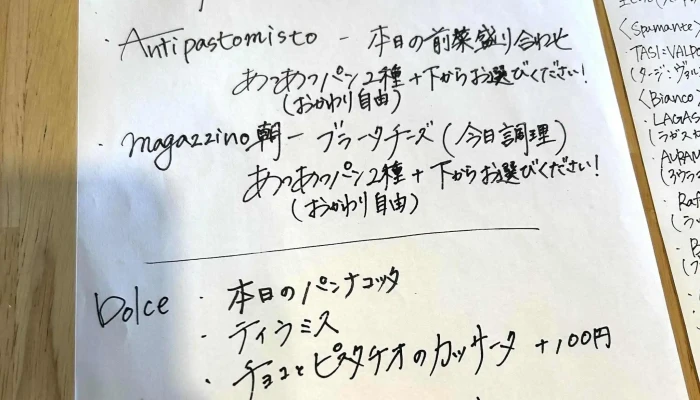 ・Antipastomisto - 本日の前菜盛り合わせ
あつあつパン2種+下からお選びください!
(おかわり自由)
・magazzino朝ー ブラータチーズ(今日調理)
あつあつパン2種+下からお選びください!
(おかわり自由)
Dolce ・本日のパンナコッタ
・ティラミス
・チョコとピスタチオのカッサータ +100円
〈Spumante〉
TASI=VALPO
〈Bianco〉
・LAGAS
・Raf